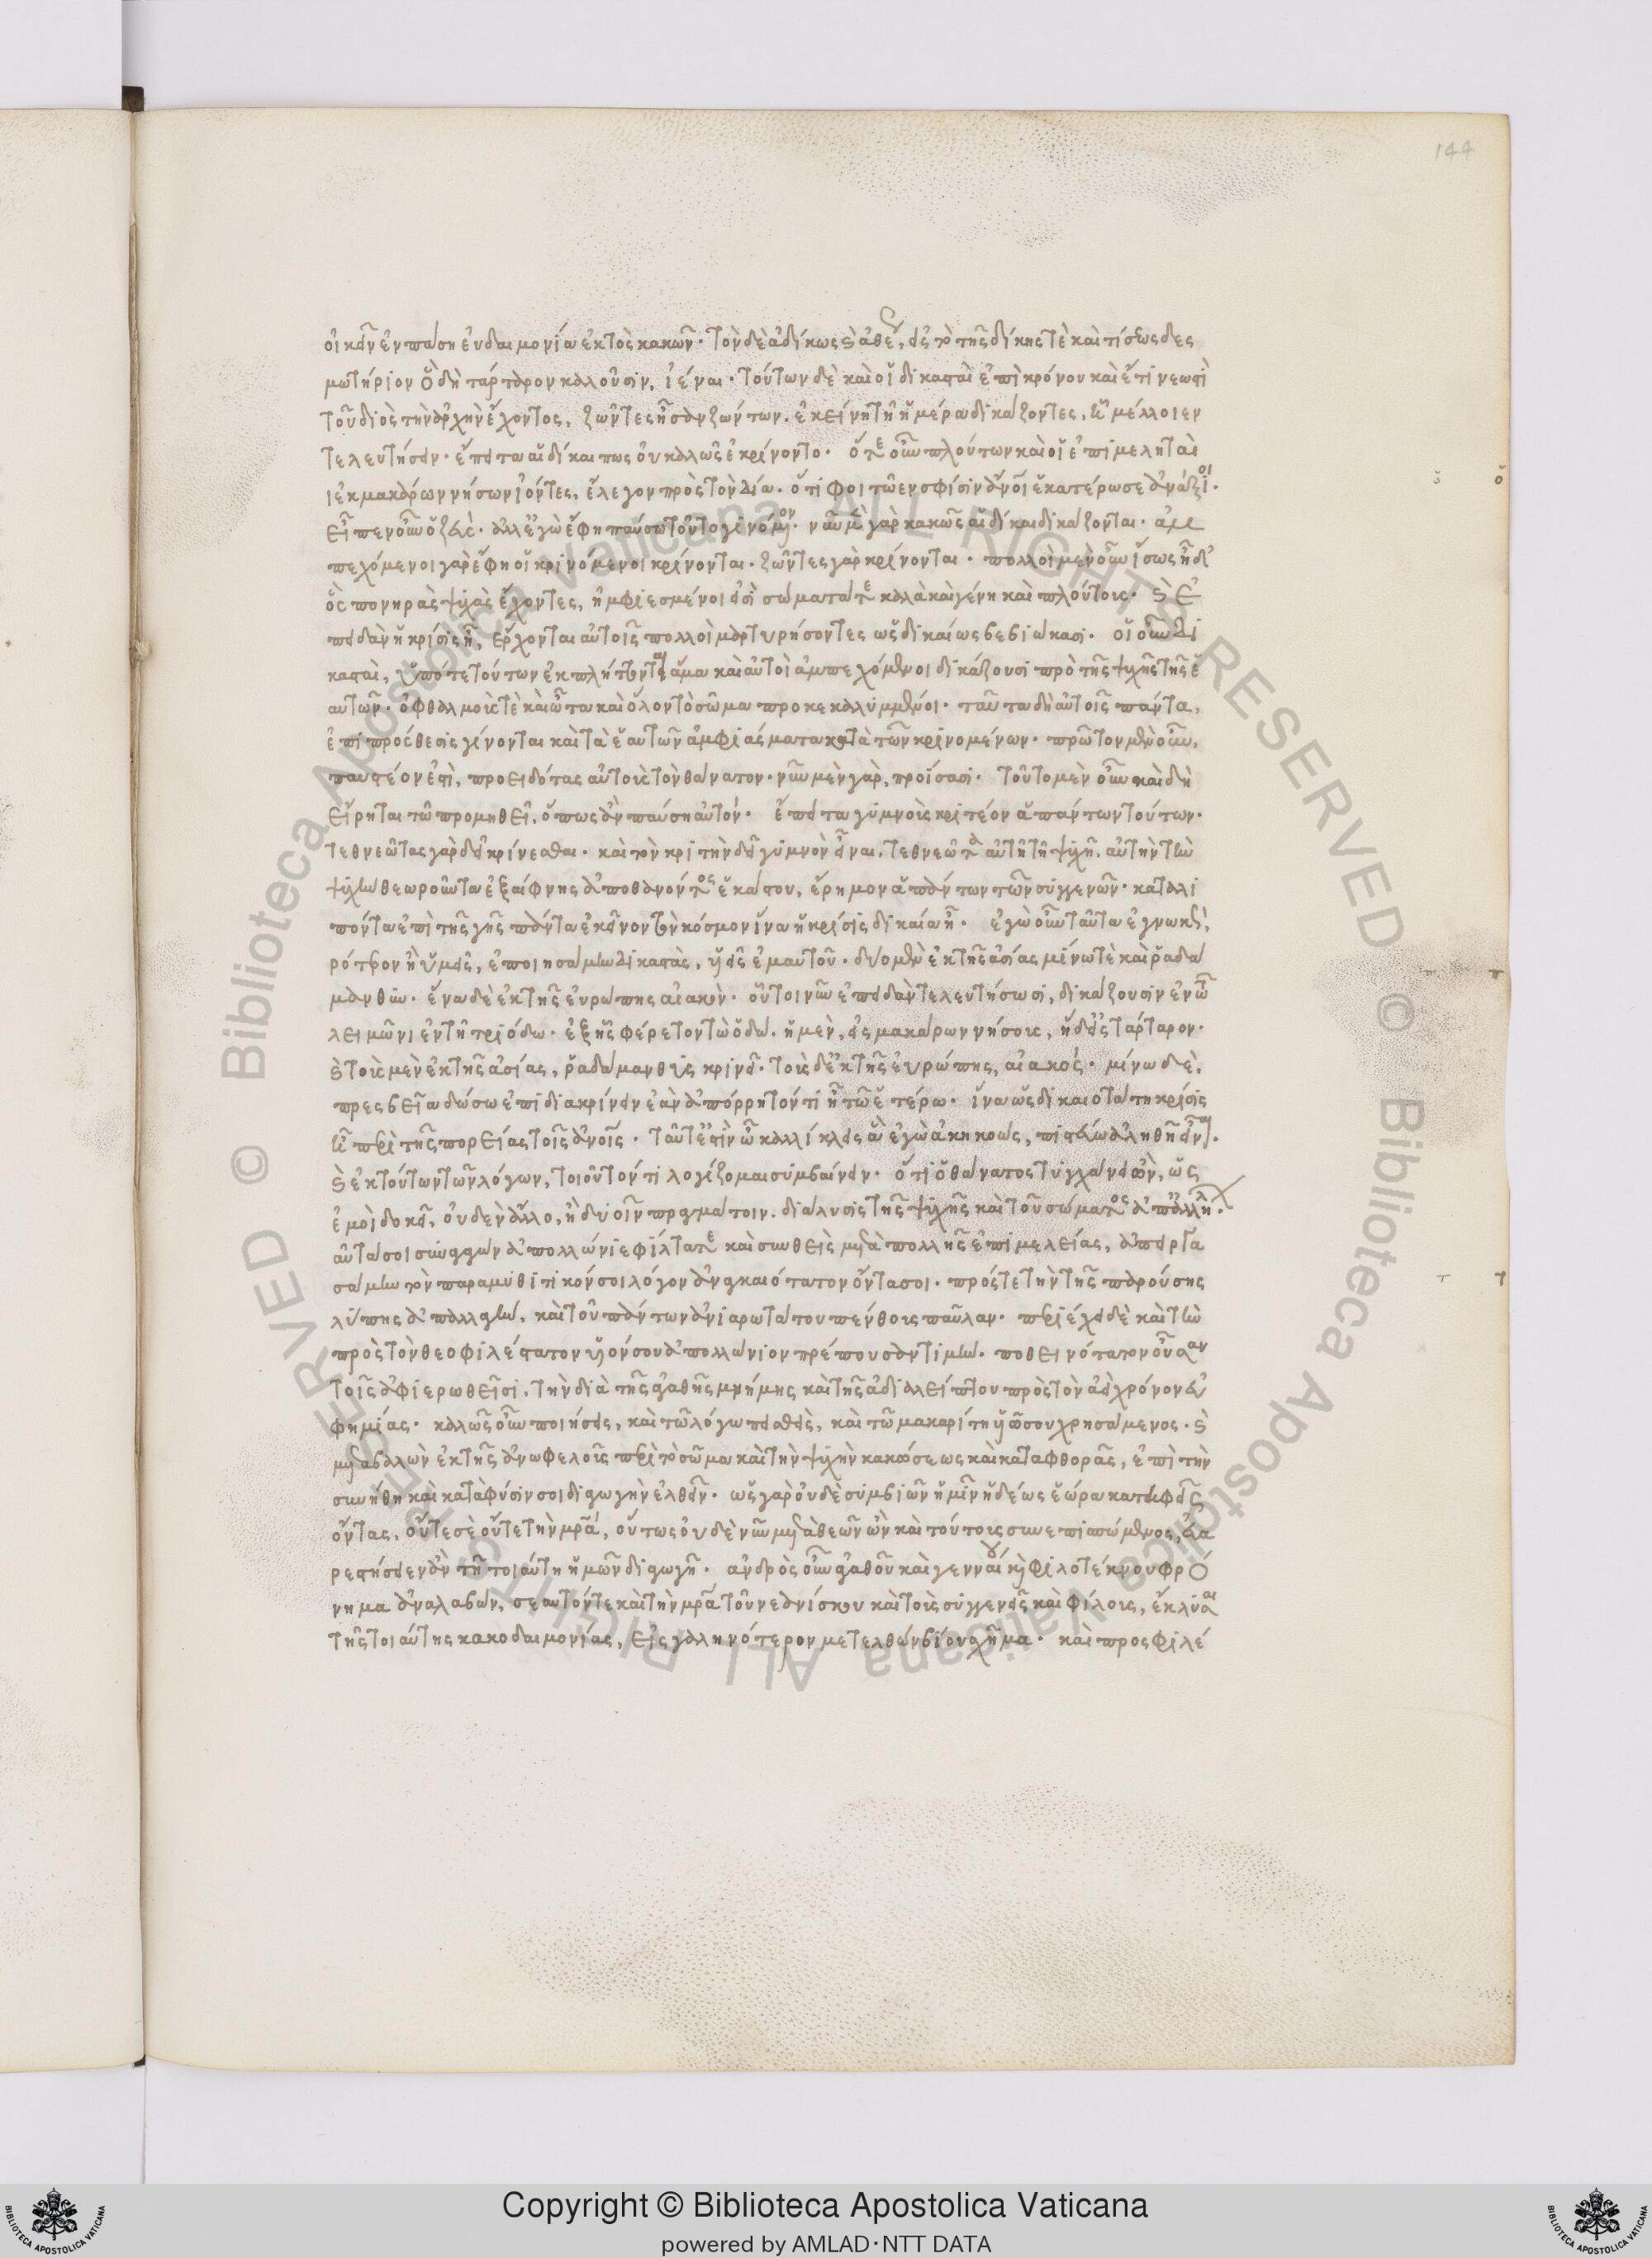 144
οἰκεῖν ἐν πάσῃ εὐδαιμονίᾳ ἐκτὸς κακῶν· τὸν δὲ ἀδίκως καὶ ἀθέως, εἰς τὸ τῆς δίκης τὲ καὶ τίσεως δες
μωτήριον ὃ δὴ τάρταρον καλοῦσιν, ἰέναι· τούτων δὲ καὶ οἱ δικασταὶ ἐπὶ κρόνου καὶ ἔτι νεωστὶ
τοῦ διὸς τὴν ἀρχὴν ἔχοντος, ζῶντες ἦσαν ζώντων. ἐκείνῃ τῇ ἡμέρᾳ δικάζοντες, ᾗ μέλλοιεν
τελευτήσειν· ἔπειτα αἱ δίκαι πως οὐ καλῶς ἐκρίνοντο· ὅτε οὖν πλούτων καὶ οἱ ἐπιμεληταὶ
ἐκ μακάρων νήσων ἰόντες, ἔλεγον πρὸς τὸν Δία. ὅτι φοιτῷεν σφίσιν ἄνοι ἑκατέρωσε ἀνάξιοι·
εἶπεν οὖν ὁ ζεὺς· ἀλλ' ἐγὼ ἔφη παύσω τοῦτο γινόμενον· νῦν μὲν γὰρ κακῶς αἱ δίκαι δικάζονται· ἀμ
πεχόμενοι γὰρ ἔφη οἱ κρινόμενοι κρίνονται· ζῶντες γὰρ κρίνονται· πολλοὶ μὲν οὖν ἴσως ἦ δ'
ὃς πονηρὰς ψυχὰς ἔχοντες, ἠμφιεσμένοι εἰσὶ σώματά τε καλὰ καὶ γένη καὶ πλούτους· καὶ ἐ
πειδὰν ἡ κρίσις ᾖ, ἔρχονται αὐτοῖς πολλοὶ μάρτυρήσοντες ὡς δικαίως βεβιώκασι· οἱ οὖν δι
κασταὶ, ὑπό τε τούτων ἐκπλήττονται ἅμα καὶ αὐτοὶ ἀμπεχόμενοι δικάζουσι πρὸ τῆς ψυχῆς τῆς ἑ
αυτῶν· ὀφθαλμοὺς τὲ καὶ ὦτα καὶ ὅλον τὸ σῶμα προκεκαλυμμένοι· ταῦτα δὴ αὐτοῖς πάντα,
ἐπιπρόσθεσις γίνονται καὶ τὰ ἑαυτῶν ἀμφιάσματα κατὰ τῶν κρινομένων· πρῶτον μὲν οὖν,
παυστέον ἐστὶ, προειδότας αὐτοὺς τὸν θάνατον· νῦν μὲν γὰρ, προΐσασι· τοῦτο μὲν οὖν καὶ δὴ
εἴρηται τῷ προμηθεῖ, ὅπως ἂν παύσῃ αὐτόν· ἔπειτα γυμνοὺς κριτέον ἁπάντων τούτων·
τεθνεῶτας γὰρ δεῖ κρίνεσθαι· καὶ τὸν κριτὴν δεῖ γυμνὸν εἶναι, τεθνεῶτα αὐτῇ τῇ ψυχῇ. αὐτὴν τὴν
ψυχὴν θεωροῦντα ἐξαίφνης ἀποθανόντος ἑκάστου, ἔρημον ἁπάντων τῶν συγγενῶν· καταλι
πόντα ἐπὶ τῆς γῆς πάντα ἐκεῖνον τὸν κόσμον ἵνα ἡ κρίσις δικαία ᾖ· ἐγὼ οὖν ταῦτα ἐγνωκὼς,
ρότερον ἢ ὑμεῖς, ἐποιησάμην δικαστὰς, υἱεῖς ἐμαυτοῦ· δύο μὲν ἐκ τῆς ἀσίας μίνω τὲ καὶ ῥαδά
μανθυν· ἕνα δὲ ἐκ τῆς εὐρώπης αἰακὸν· οὗτοι νῦν ἐπειδὰν τελευτήσωσι, δικάζουσιν ἐν τῷ
λειμῶνι ἐν τῇ τριόδῳ· ἐξ ἧς φέρετον τὼ ὁδώ. ἡ μὲν, εἰς μακάρων νήσους, ἡ δ' εἰς τάρταρον·
καὶ τοὺς μὲν ἐκ τῆς ἀσίας, ῥαδάμανθυς κρινεῖ· τοὺς δ' ἐκ τῆς εὐρώπης, αἰακός· μίνῳ δὲ,
πρεσβεῖα δώσω ἐπιδιακρίνειν ἐὰν ἀπόρρητόν τι ᾖ τῷ ἑτέρῳ· ἵνα ὡς δικαιοτάτη κρίσις
ᾖ περὶ τῆς πορείας τοῖς ἀνοις· ταῦτ' ἐστὶν ὦ καλλίκλεις ἃ ἐγὼ ἀκηκοὼς, πιστεύω ἀληθῆ εἶναι·
καὶ ἐκ τούτων τῶν λόγων, τοιοῦτόν τι λογίζομαι συμβαίνειν· ὅτι ὁ θάνατος τυγχάνει ὢν, ὡς
ἐμοὶ δοκεῖ, οὐδὲν ἄλλο, ἢ δυοῖν πραγμάτοιν. διάλυσις τῆς ψυχῆς καὶ τοῦ σώματος ἀπ' ἀλλήλ·
αὐτά σοι συναγαγὼν ἀπολλώνιε φίλτατε καὶ συνθεὶς μετὰ πολλῆς ἐπιμελείας, ἀπειργα
σάμην τὸν παραμυθιτικόν σοι λόγον ἀναγκαιότατον ὄντα σοι· πρός τε τὴν τῆς παρούσης
λύπης ἀπαλλαγὴν, καὶ τοῦ πάντων ἀνιαρωτάτου πένθους παῦλαν· περιέχει δὲ καὶ τὴν
πρὸς τὸν θεοφιλέστατον υἱόν σου ἀπολλώνιον πρέπουσαν τιμὴν. ποθεινότατον οὖσαν
τοῖς ἀφιερωθεῖσι. τὴν διὰ τῆς ἀγαθῆς μνήμης καὶ τῆς ἀδιαλείπτου πρὸς τὸν ἀεὶ χρόνον εὐ
φημίας· καλῶς οὖν ποιήσεις, καὶ τῷ λόγῳ πεισθεὶς, καὶ τῷ μακαρίτῃ υἱῷ σου χρησάμενος· καὶ
μεταβαλὼν ἐκ τῆς ἀνωφελοῦς περὶ τὸ σῶμα καὶ τὴν ψυχὴν κακώσεως καὶ καταφθορᾶς, ἐπὶ τὴν
συνήθη καὶ κατὰ φύσιν σοι διαγωγὴν ἐλθεῖν· ὡς γὰρ οὐδὲ συμβιῶν ἡμῖν ἡδέως ἑώρα κατηφεῖς
ὄντας, οὔτε σὲ οὔτε τὴν μρα, οὕτως οὐδὲ νῦν μετὰ θεῶν ὢν καὶ τούτοις συνεστιώμενος, εὐα
ρεστήσειεν ἂν τῇ τοιαύτῃ ἡμῶν διαγωγῇ· ἀνδρὸς οὖν ἀγαθοῦ καὶ γενναίου καὶ φιλοτέκνου φρό
νημα ἀναλαβὼν, σεαυτόν τε καὶ τὴν μρα τοῦ νεανίσκου καὶ τοὺς συγγενεῖς καὶ φίλους, ἔκλυσαι
τῆς τοιαύτης κακοδαιμονίας, εἰς γαληνότερον μετελθὼν βίου σχῆμα· καὶ προσφιλέ
Copyright © Biblioteca Apostolica Vaticana
powered by AMLAD·NTT DATA